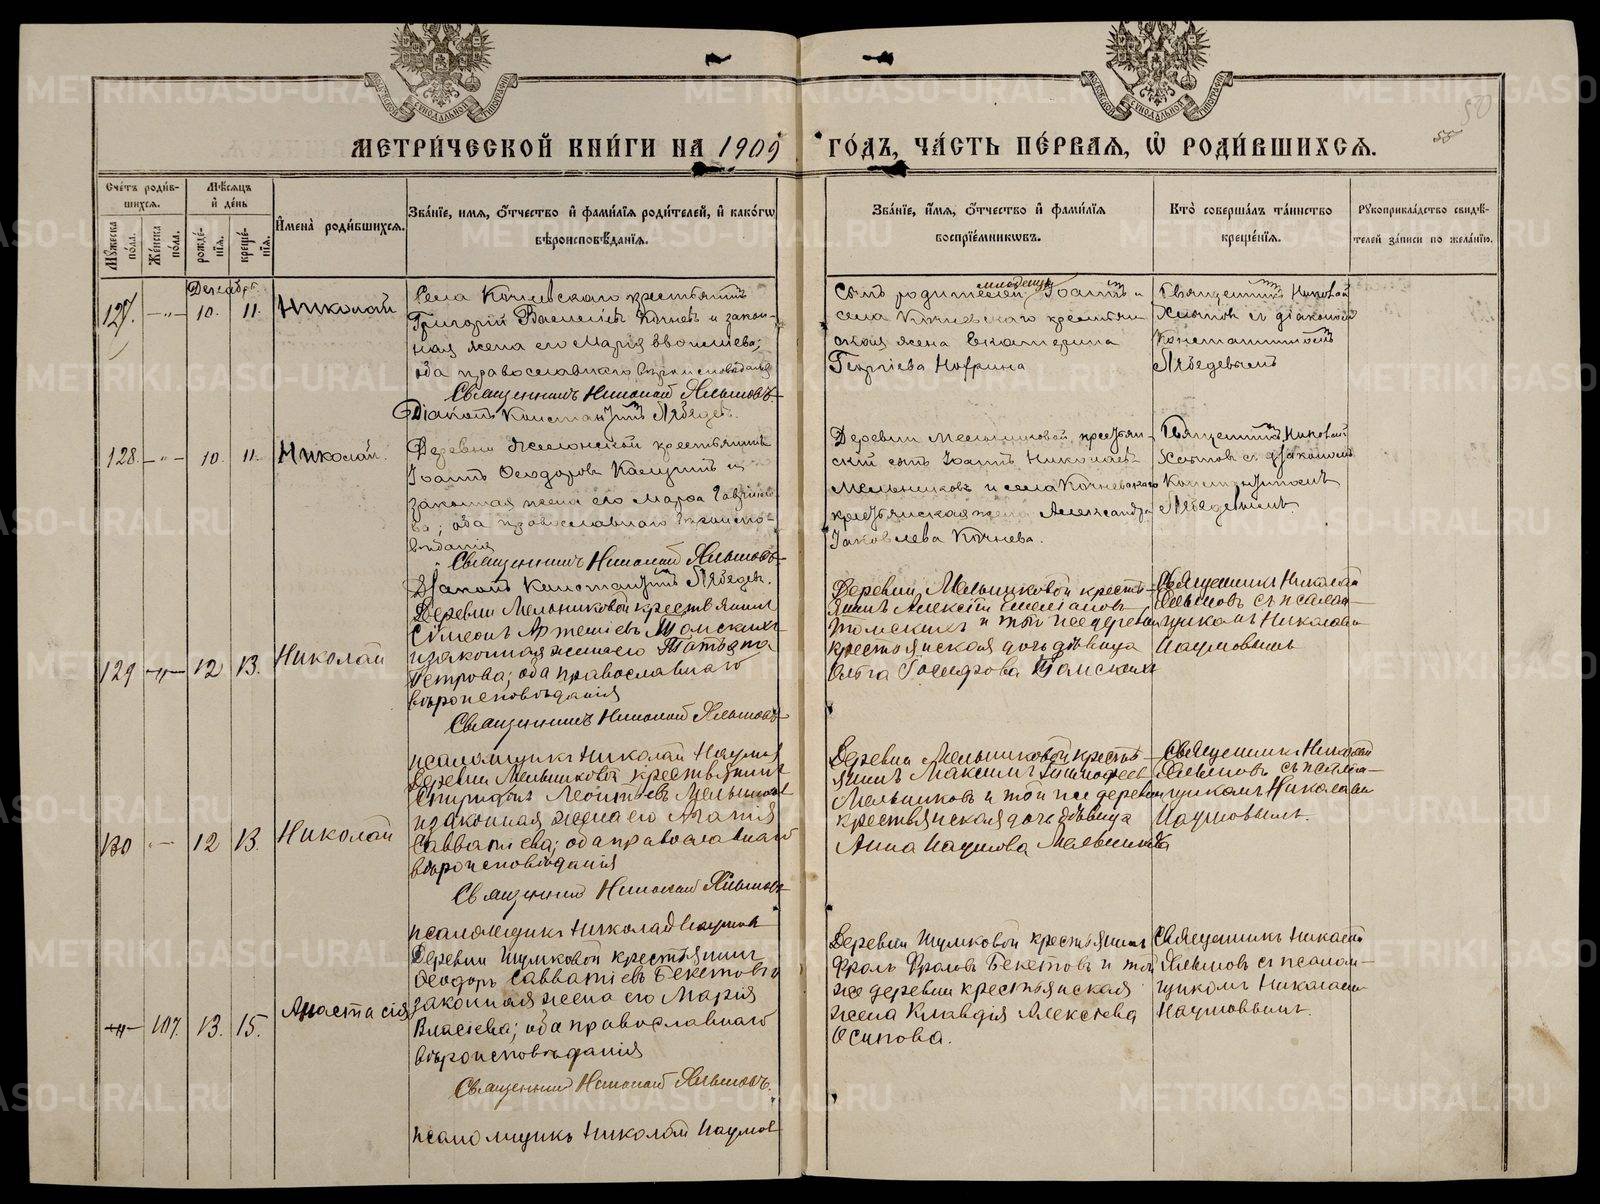 МЕТРИ́ЧЕСКОЙ КНИ́ГИ НА 1909 ГО́ДЪ, ЧА́СТЬ ПЕ́РВАЯ, Ѡ҆ РОДИ́ВШИХСЯ.
50
Сче́тъ роди́в-
шихся.
Мѣ́сяцъ
и҆ де́нь
И҆мена̀ роди́вшихся.
Зва́нїе, имя, ѻ҆́тчество и҆ фами́лїя роди́телей, и҆ како́гѡ
вѣроисповѣ́данїя.
Мꙋ́жеска по́ла.
Же́нска по́ла.
рожде́-
нїя.
креще́-
нїя.
Зва́нїе, и҆́мя, ѻ҆́тчество и҆ фами́лїя
воспрїе́мникѡвъ.
Кто̀ соверша́лъ та́инство
креще́нїя.
Рꙋкоприкла́дство свидѣ́-
телей за́писи по жела́нїю.
Декабрь
127.
10.
11.
Николай
Села Кочневскаго крестьянинъ
Григорій Васильевъ Кочневъ и закон-
ная жена его Марія
оба православнаго вѣроисповѣданія
Священникъ Николай Хлыновъ.
Діаконъ Константинъ Лебедев.
Сынъ родителей младенца Іоаннъ и
села Кочневскаго крестьян
ская жена Екатерина
Георгіева
Священникъ Николай
Хлыновъ съ діакономъ
Константиномъ
Лебедевымъ
128.
10.
11.
Николай.
Деревни крестьянинъ
Іоаннъ Ѳеодоровъ и
законная жена его Марѳа
ва; оба православнаго вѣроиспо-
вѣданія
Священникъ Николай Хлыновъ
Діаконъ Константинъ Лебедев.
Деревни Мельниковой крестьян-
скій сынъ Іоаннъ Николаевъ
Мельниковъ и села Кочневскаго
крестьянская жена Александра
Іаковлева Кочнева.
Священникъ Николай
Хлыновъ съ діакономъ
Константиномъ
Лебедевымъ.
129
12
13.
Николай
Деревни Мельниковой крестьянинъ
Сѵмеонъ Артеміевъ Томскихъ
и законная жена его Татьяна
Петрова; оба православнаго
вѣроисповѣданія
Священникъ Николай Хлыновъ
псаломщикъ Николай Наумов
Деревни Мельниковой кресть-
янинъ Алексій
Томскихъ и той же деревни
крестьянская дочь дѣвица
Ольга Томскихъ
Священникъ Николай
Хлыновъ съ псалом-
щикомъ Николаемъ
Наумовымъ
130
12
13.
Николай
Деревни Мельниковой крестьянинъ
Спиридонъ Леонтіевъ Мельников
и законная жена его Агапія
Савватіева; оба православнаго
вѣроисповѣданія
Священник Николай Хлыновъ
псаломщикъ Николай Наумов
Деревни Мельниковой кресть-
янинъ Максимъ Тимофеев
Мельниковъ и той же деревни
крестьянская дочь дѣвица
Анна Наумова Мельникова
Священникъ Николай
Хлыновъ съ псалом-
щикомъ Николаемъ
Наумовымъ.
107.
13.
15.
Анастасія
Деревни Шумковой крестьянинъ
Ѳеодоръ Савватіевъ Бекетовъ и
законная жена его Марія
Власіева; оба православнаго
вѣроисповѣданія
Священник Николай Хлыновъ.
псаломщикъ Николай Наумов
Деревни Шумковой крестьянинъ
Фролъ Фроловъ Бекетовъ и той
же деревни крестьянская
жена Клавдія Алексіева
Осипова.
Священникъ Николай
Хлыновъ съ псалом-
щикомъ Николаемъ
Наумовымъ.
METRIKI.GASO-URAL.RU